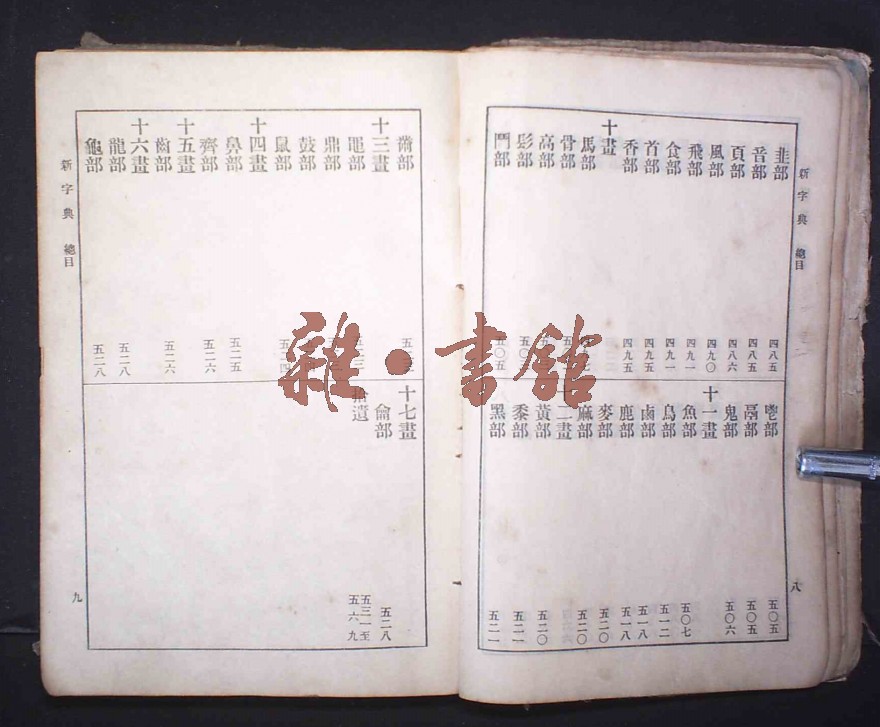 新字典 總目
八
韭部 四八五
音部 四八五
頁部 四八六
風部 四九〇
飛部 四九一
食部 四九一
首部 四九五
香部 四九五
十畫
馬部
骨部
高部
髟部
鬥部 五〇五
鬯部 五〇五
鬲部 五〇五
鬼部 五〇六
十一畫
魚部 五〇七
鳥部 五一二
鹵部 五一八
鹿部 五一八
麥部 五二〇
麻部 五二〇
十二畫
黃部 五二〇
黍部 五二一
黑部 五二一
黹部
十三畫
黽部
鼎部
鼓部
鼠部
十四畫
鼻部 五二五
齊部 五二六
十五畫
齒部 五二六
十六畫
龍部 五二八
龜部 五二八
十七畫
龠部 五二八
拾遺 五三一至五六九
新字典 總目
九
雜·書館